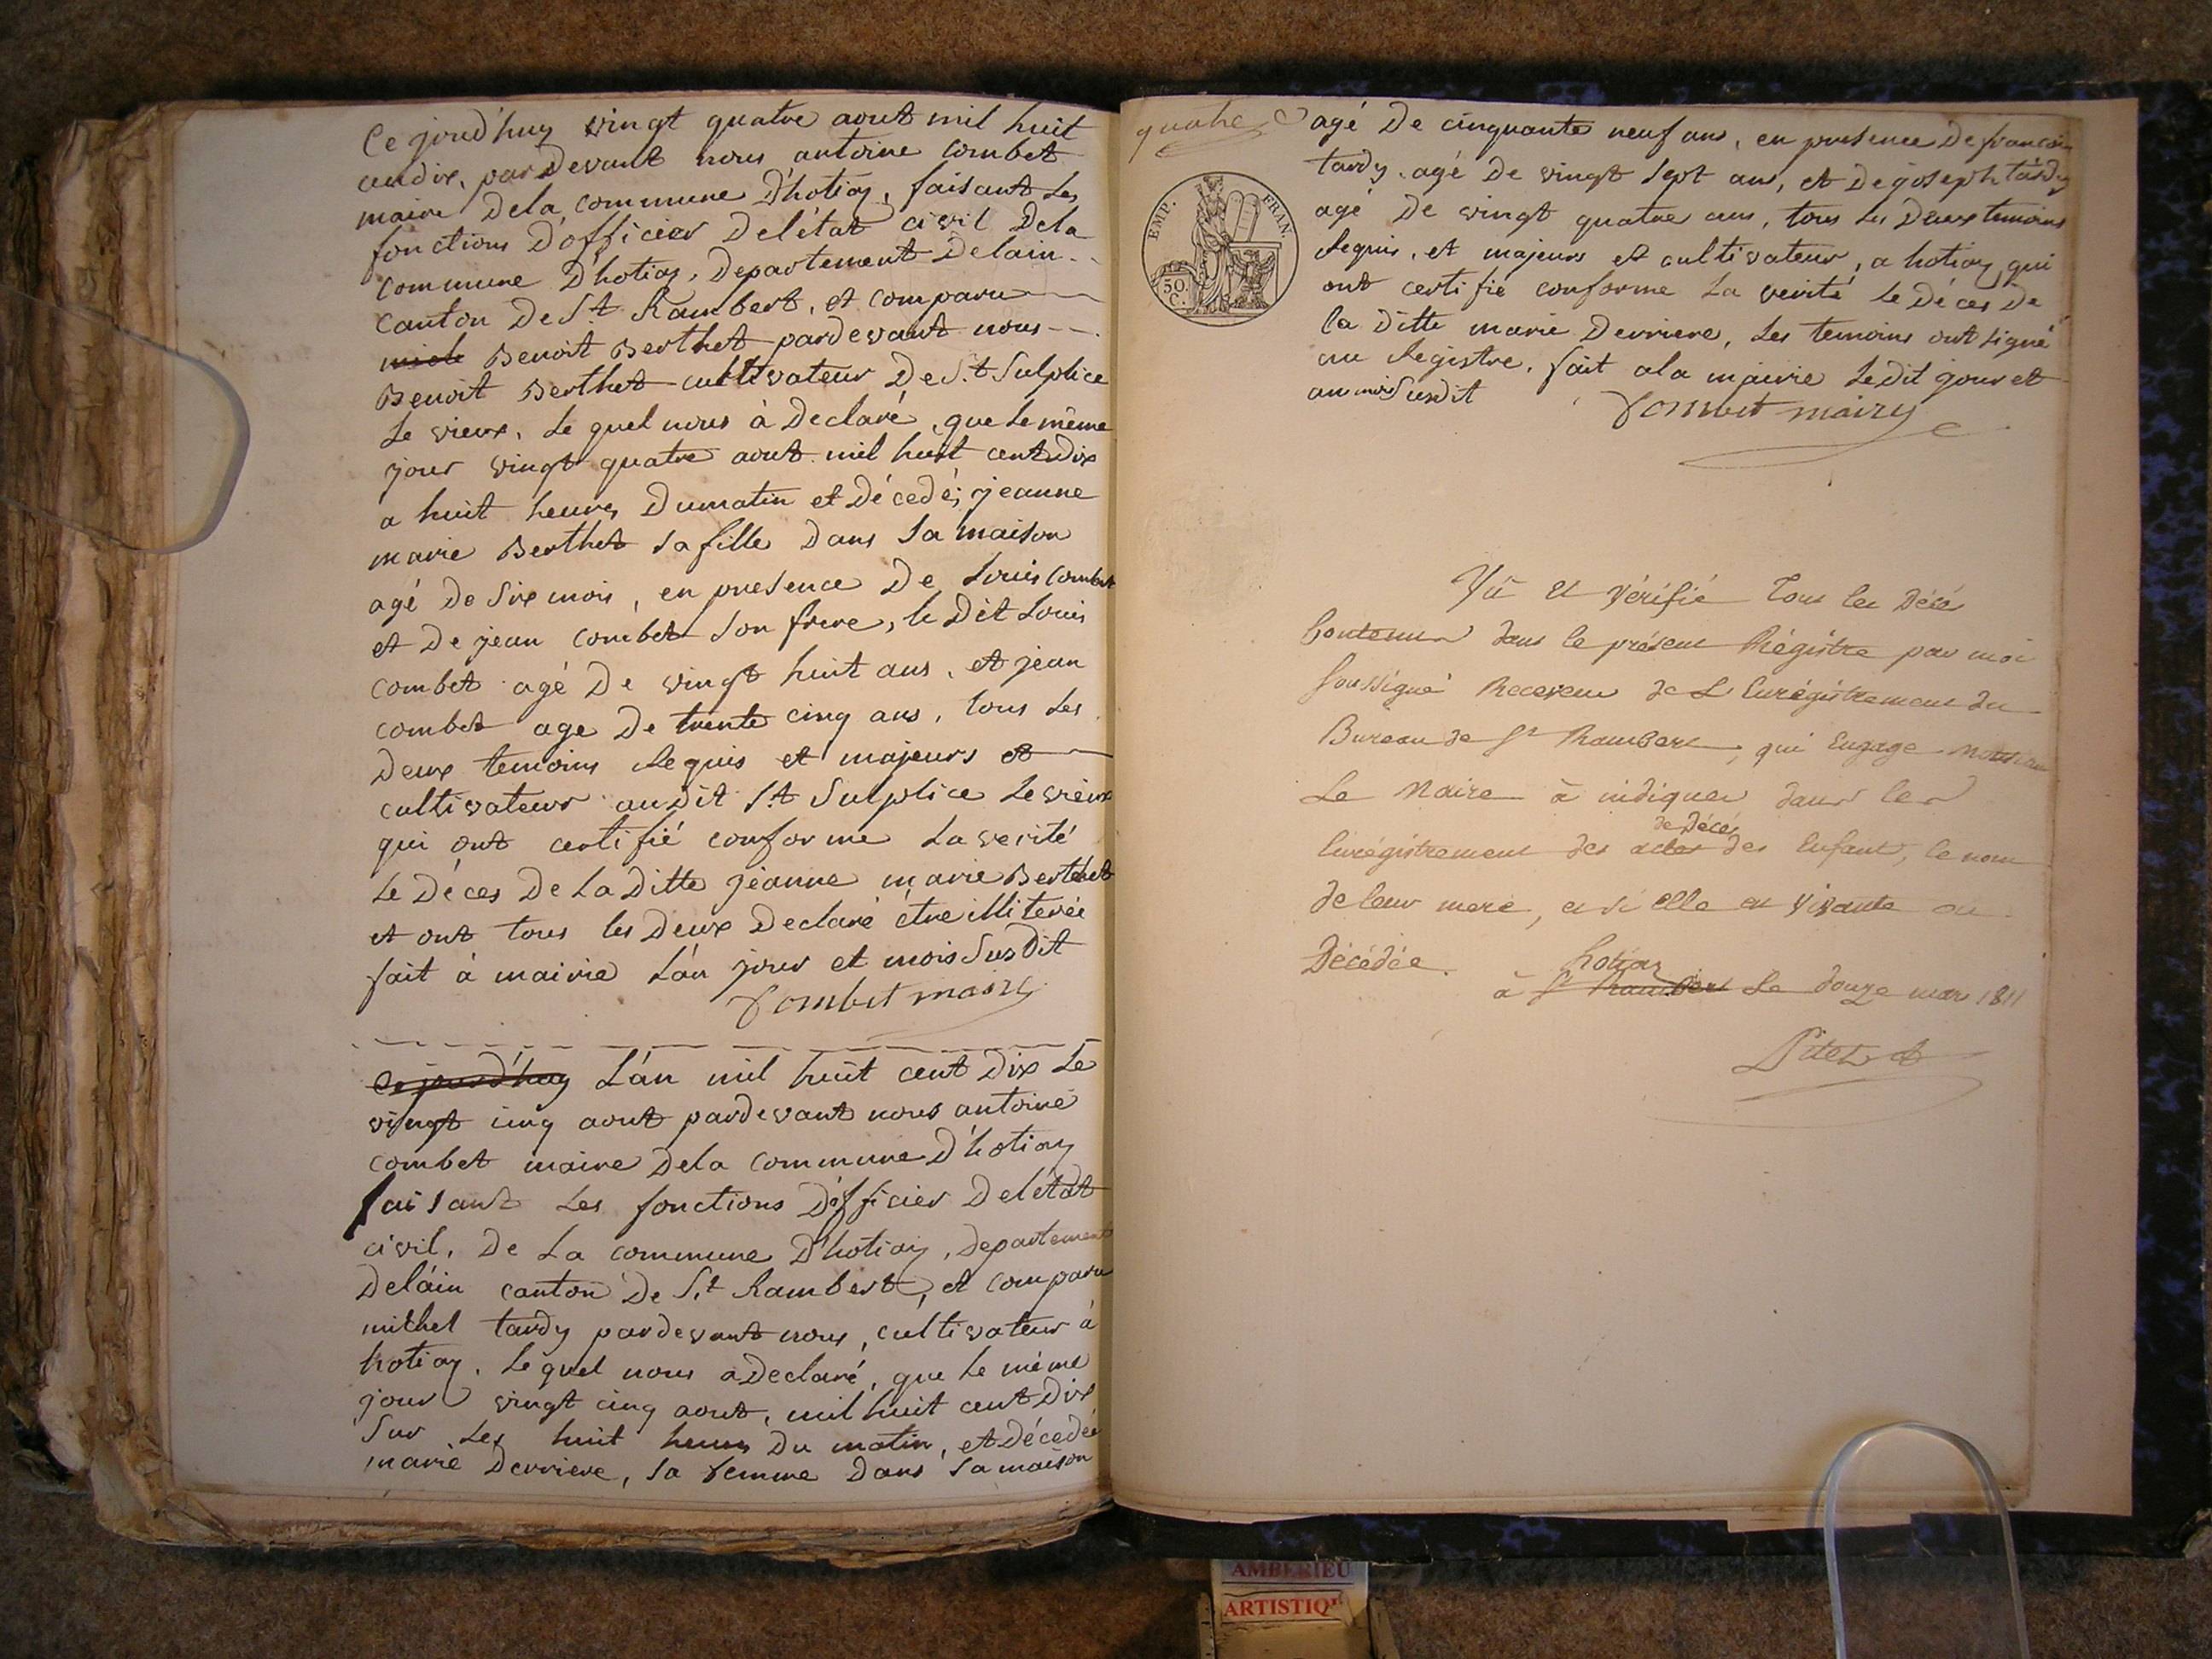 Ce jourd'huy vingt quatre aout mil huit
cendix, par Devant nous antoine Combet
maire Dela Commune D'hotiay, faisant Les
fonctions D'officier Delétat civil Dela
Commune D'hotiay, Departement Delain
Canton De St Rambert, et comparu
Benoit Berthet pardevant nous
Benoit Berthet cultivateur De St Sulplice
Le vieux, Le quel nous à Declaré, que Le même
jour vingt quatre aout mil huit cent dix
a huit heures Dumatin et Décedé; jeanne
marie Berthet sa fille Dans Sa maison
agé de Six mois, en presence De Louis Combet
et De jean Combet Son frere, le Dit Louis
Combet agé De vingt huit ans, et jean
Combet age De trente cinq ans, tous Les
Deux temoins Requis et majeurs et
cultivateurs audit St Sulplice Le vieux
qui ont certifié conforme La verité
Le Déces De La Ditte jéanne marie Berthet
et ont tous les Deux Declaré être illiterée
fait à mairie L'an jour et mois Susdit
Combet maire
Ce jourd'huy L'an mil huit cent Dix Le
vingt cinq aout pardevant nous antoine
Combet maire Dela Commune D'hotiay
faisant Les fonctions D'officier Delétat
civil, De La Commune D'hotiay, Departement
Delain canton De St Rambert, et comparu
michel tardy pardevant nous, cultivateur à
hotiay, Le quel nous aDeclaré, que Le même
jour vingt cinq aout, mil huit cent Dix
Sur Les huit heures Du matin, et Décedée
marie Derriere, Sa femme Dans Sa maison
quatre
EMP. FRAN.
50.
C.
agé De cinquante neuf ans, en presence De francois
tardy, agé De vingt Sept ans, et De joseph tardy
agé De vingt quatre ans, tous Les Deux temoins
Requis, et majeurs et cultivateurs, a hotiay, qui
ont certifié conforme La verité Le Déces De
La Ditte marie Derriere, Les temoins ont Signé
au Registre, fait ala mairie Ledit jour et
an mois Susdit
Combet maire
Vû et Vérifié Tous les Décés
Contenus dans le présent Régistre par moi
Soussigné Receveur de L'Enrégistrement du
Bureau de St Rambert, qui Engage Monsieur
Le Maire à indiquer dans les
de Décés
Enrégistrement des actes des Enfants, le nom
de leur mere, et si elle est Vivante ou
Décédée.
hotiay
à St Rambert Le douze mars 1811
AMBERIEU
ARTISTIQ